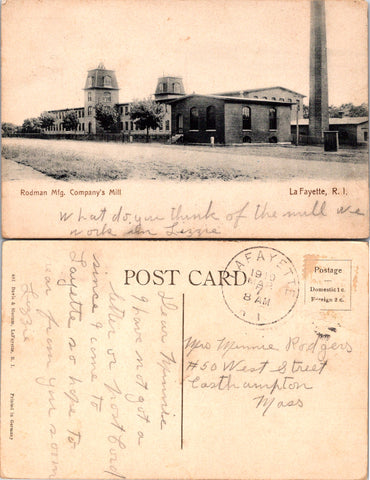 Rodman Mfg. Company's Mill
La Fayette, R. I.
What do you think of the mill we
work in Lizzie
POST CARD
LAFAYETTE
1910
MAR
8 AM
R. I.
Postage
Domestic 1c.
Foreign 2 c.
Dear Minnie
I have not got a
letter or post Card
since I come to
Lafayette so hope to
hear from you soon
Lizzie
Mrs Minnie Rodgers
#50 West Street
Easthampton
Mass
Printed in Germany